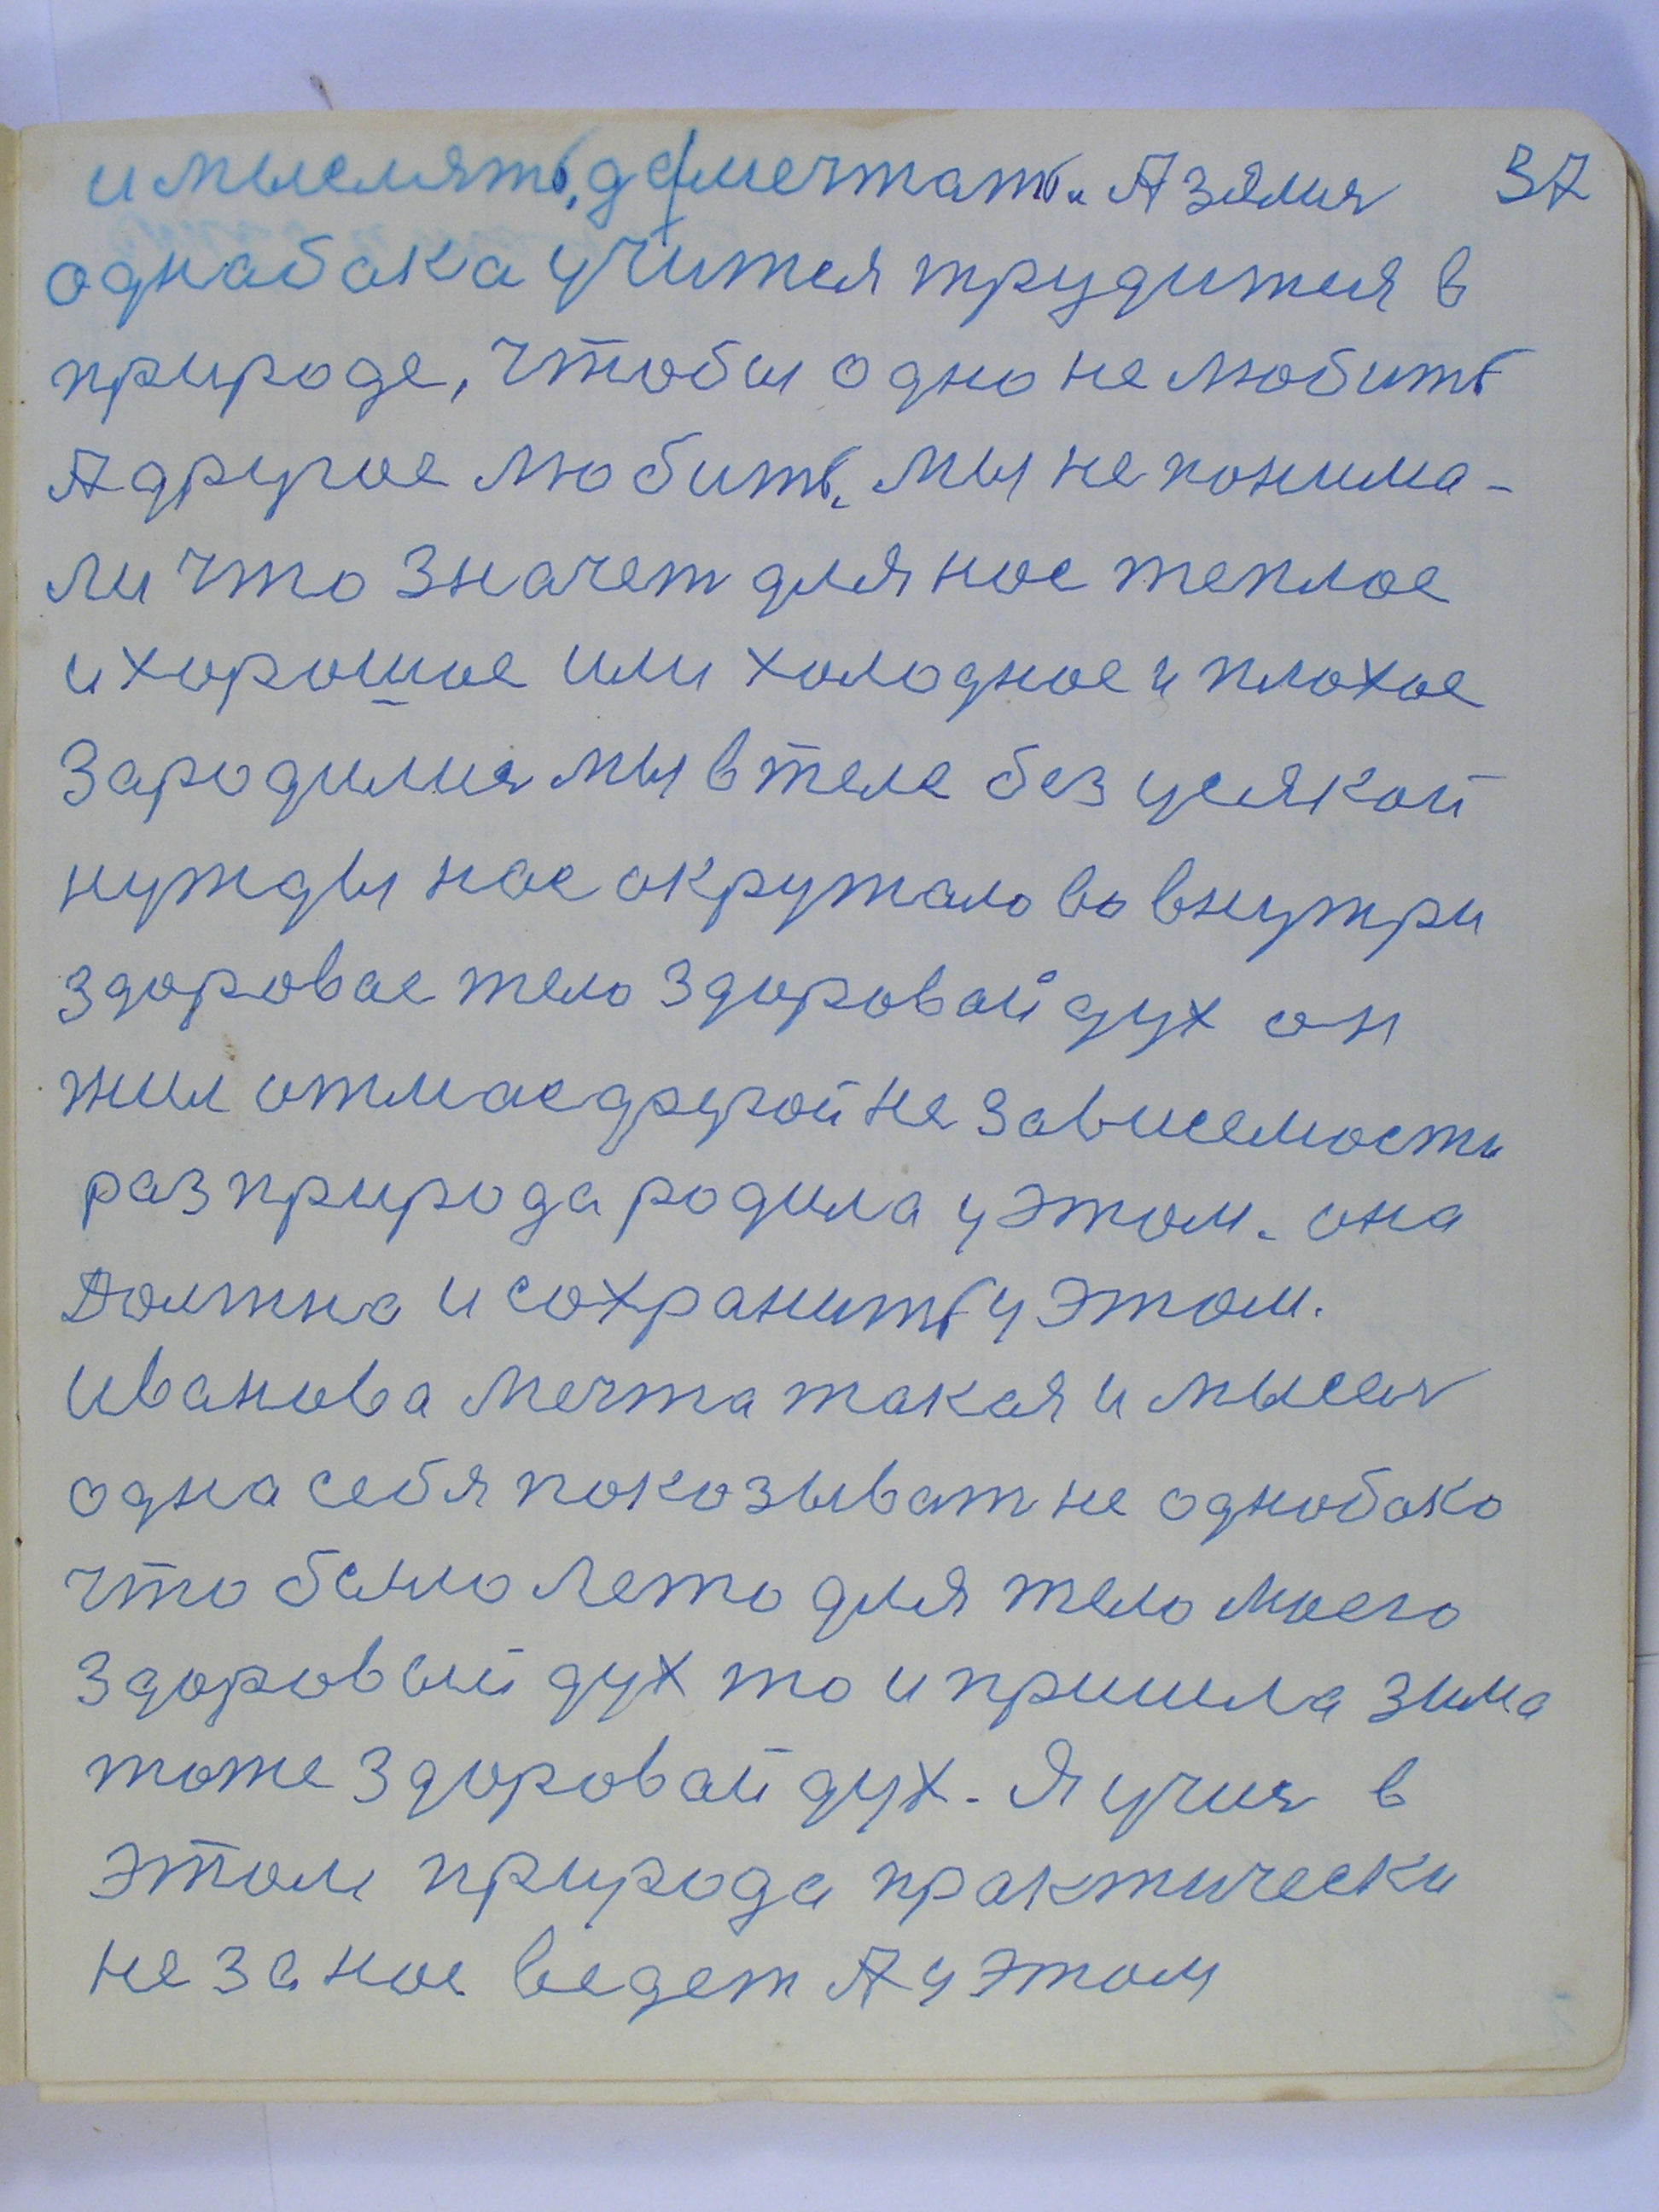 и мыслять, да мечтать. А зялися 37
однабака учится трудится в
природе, чтобы одно не любить
А другое любить. мы не понима-
ли что значет для нас теплое
и хорошое или холодное и плохое
Зародилися мы в теле без усякой
нужды нас окружало во внутри
здоровае тело здоровай дух он
жил от нас другой не зависемости
раз природа родила у этом. она
Должна и сохранить у этом.
Иванова мечта такая и мысля
одна себя показыват не однобако
что было лето для тело моего
здоровый дух то и пришла зима
тоже здоровай дух. Я учися в
этом природа практически
не за нос ведет А у этом